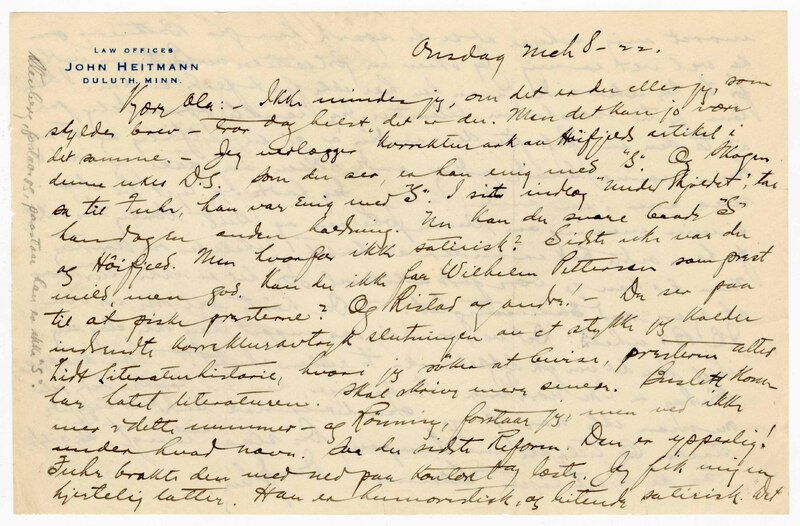 LAW OFFICES
JOHN HEITMANN
DULUTH, MINN.
Onsdag Mch 8-22.
Kjære Ola:- Ikke mindes jeg, om det er du eller jeg, som
skylder brev - tror dog helst, det er du. Men det kan jo være
det samme. - Jeg vedlægger korrektur ark av Höifjeds artikel i
denne ukes D.S. Som du ser, er han enig med "S". Og Skogen
sa til Fuhr, han var enig med "S". I sit indlæg "Under Skjoldet", tar
han dagen anden holdning. Nu kan du svare baade "S"
og Höifjed. Men hvorfor ikke satirisk? Sidste uke var du
mild, men god. Kan du ikke faa Wilhelm Pettersen som prest
til at piske presterne? Og Ristad og andre! - Du ser paa
indsendte korrekturavtryk slutningen av et stykke jeg kalder
Lidt literaturhistorie, hvori jeg söker at bevise, presterne altid
har hatet literaturen. Skal skrive mere senere. Buslett kom-
mer i dette nummer - og Rönning, forstaar jeg, men ved ikke
under hvad navn. Saa du sidste Reform. Den er ypperlig!
Fuhr brakte den med ned paa kontoret og læste. Jeg fik mig en
hjertelig latter. Han er humoristisk, og bitende satirisk. Det
forstaar og paastaar han er ikke "S".